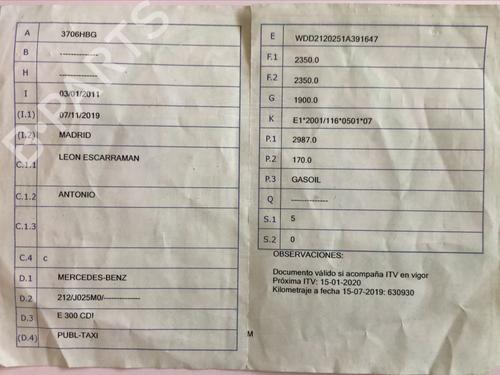 A 3706HBG
B --------------
H --------------
I 03/01/2011
(I.1) 07/11/2019
(I.2) MADRID
C.1.1 LEON ESCARRAMAN
C.1.2 ANTONIO
C.1.3
C.4 c
D.1 MERCEDES-BENZ
D.2 212/J025M0/--------------
D.3 E 300 CDI
(D.4) PUBL-TAXI
E WDD2120251A391647
F.1 2350.0
F.2 2350.0
G 1900.0
K E1*2001/116*0501*07
P.1 2987.0
P.2 170.0
P.3 GASOIL
Q --------------
S.1 5
S.2 0
OBSERVACIONES:
Documento válido si acompaña ITV en vigor
Próxima ITV: 15-01-2020
Kilometraje a fecha 15-07-2019: 630930
M
D-PARTS